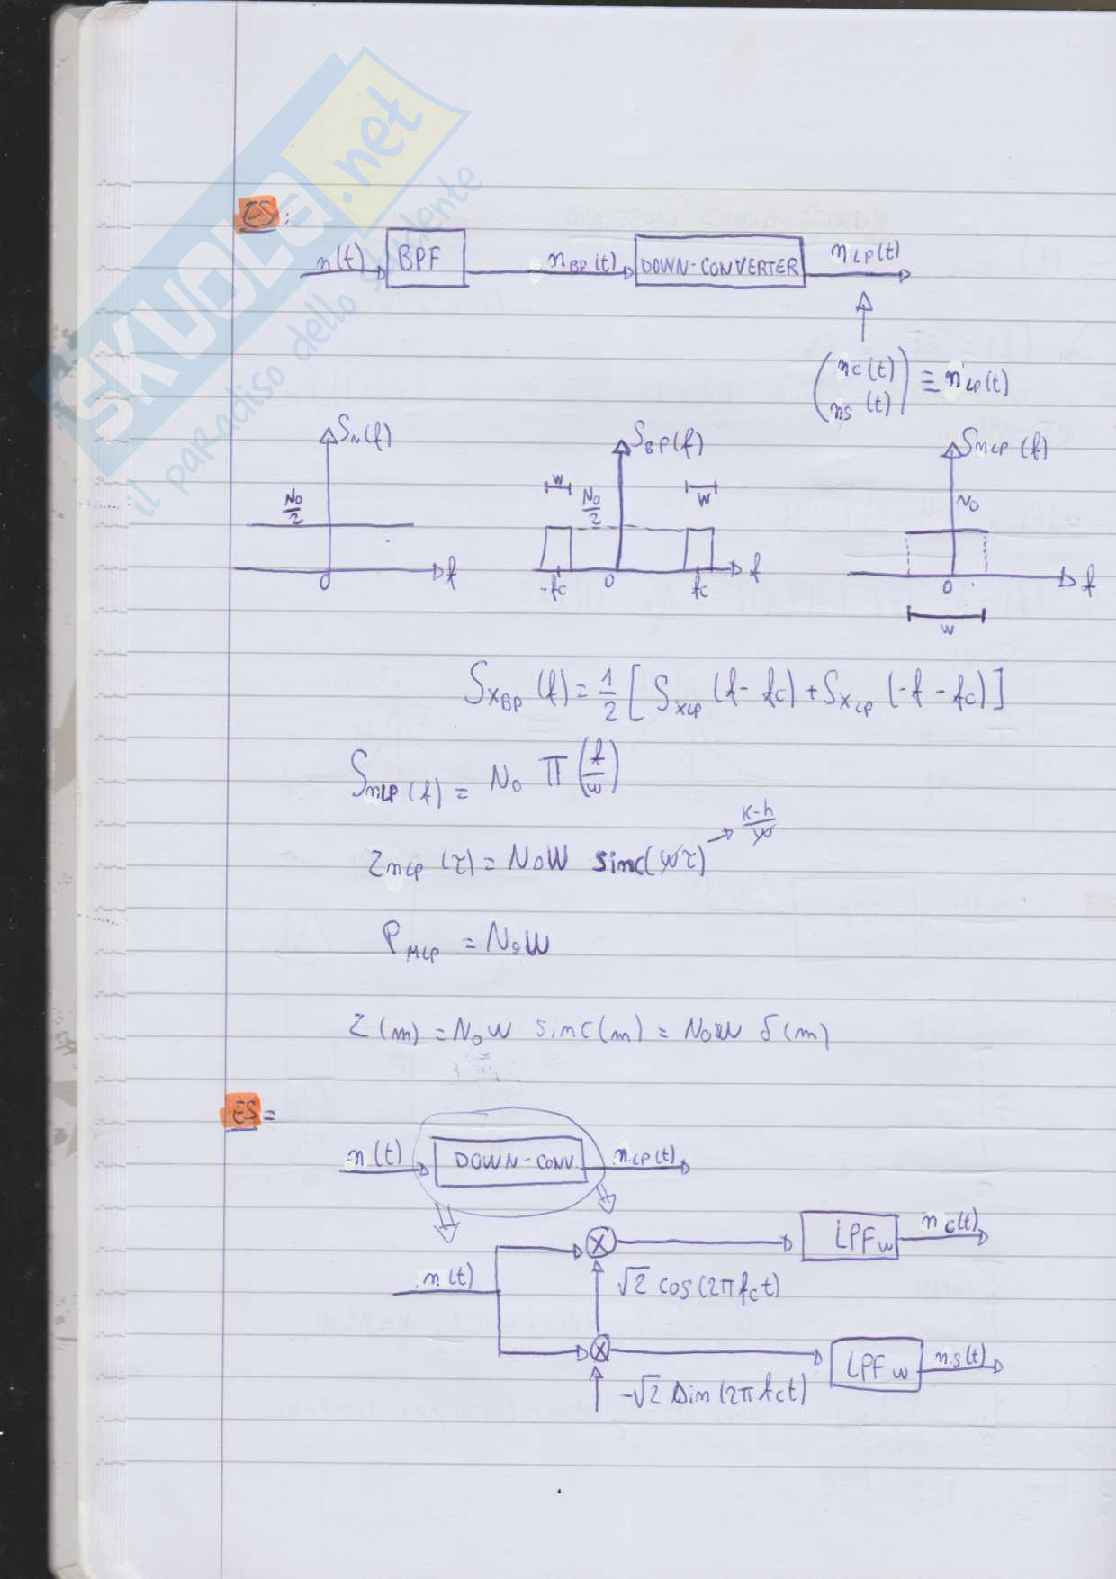 SKUOLA.net
il paradiso dello studente
ES:
n(t) BPF nBP(t) DOWN-CONVERTER nLP(t)
(nc(t) ns(t)) ≡ nLP(t)
Sn(f) SBP(f) SnLP(f)
W N0/2 W N0
N0/2
0 f -fc 0 fc f 0 f
W
SXBP(f) = 1/2 [SXLP(f-fc) + SXLP(-f-fc)]
SnLP(f) = N0 Π(f/W)
ZnLP(τ) = N0W sinc(Wτ) → K-h/W
PnLP = N0W
Z(m) = N0W sinc(m) = N0W δ(m)
ES=
n(t) DOWN-CONV. nLP(t)
X LPF W nc(t)
n(t) √2 cos(2πfct)
X LPF W ns(t)
-√2 sin(2πfct)